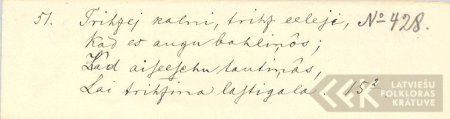 51. Trihzej kalni, trihz eeleji, № 428.
Kad es augu bahliņôs;
Tâd aiseeschu tautiņâs,
Lai trihzina lastigala. 15²
LATVIEŠU
FOLKLORAS
KRĀTUVE